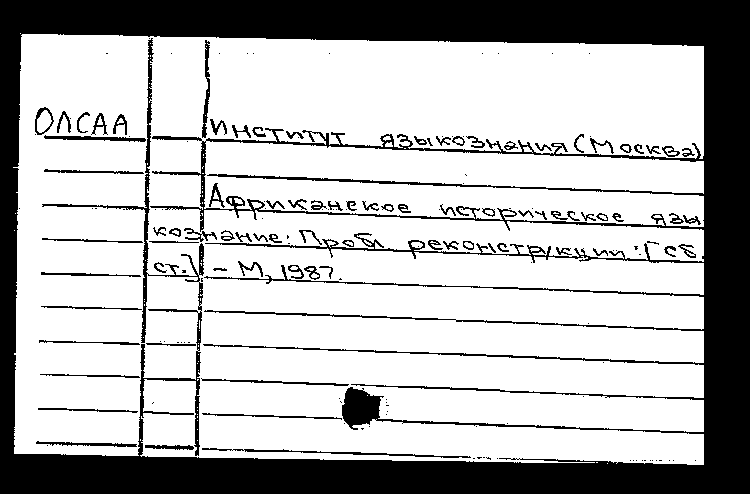 ОЛСАА Институт языкознания (Москва)
Африканское историческое язы
кознание: Пробл. реконструкции: [Сб.
ст.] – М, 1987.